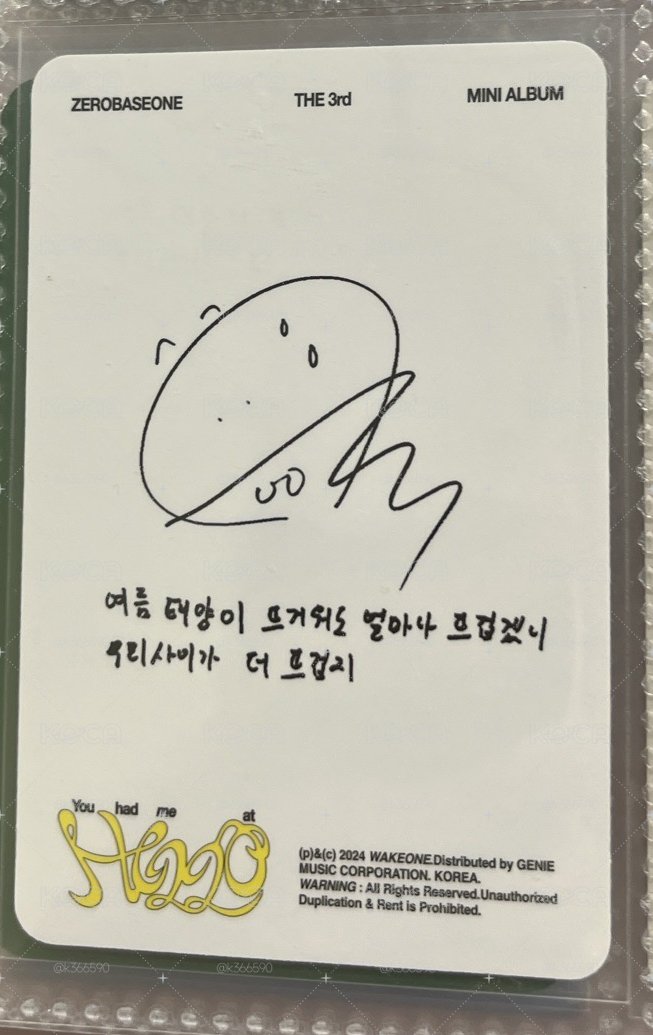 ZEROBASEONE THE 3rd MINI ALBUM
여름 태양이 뜨거워도 얼마나 뜨겁겠니
우리사이가 더 뜨겁지
You had me at
HELLO
(p)&(c) 2024 WAKEONE.Distributed by GENIE
MUSIC CORPORATION. KOREA.
WARNING : All Rights Reserved.Unauthorized
Duplication & Rent is Prohibited.
@k366590 @k366590 @k366590